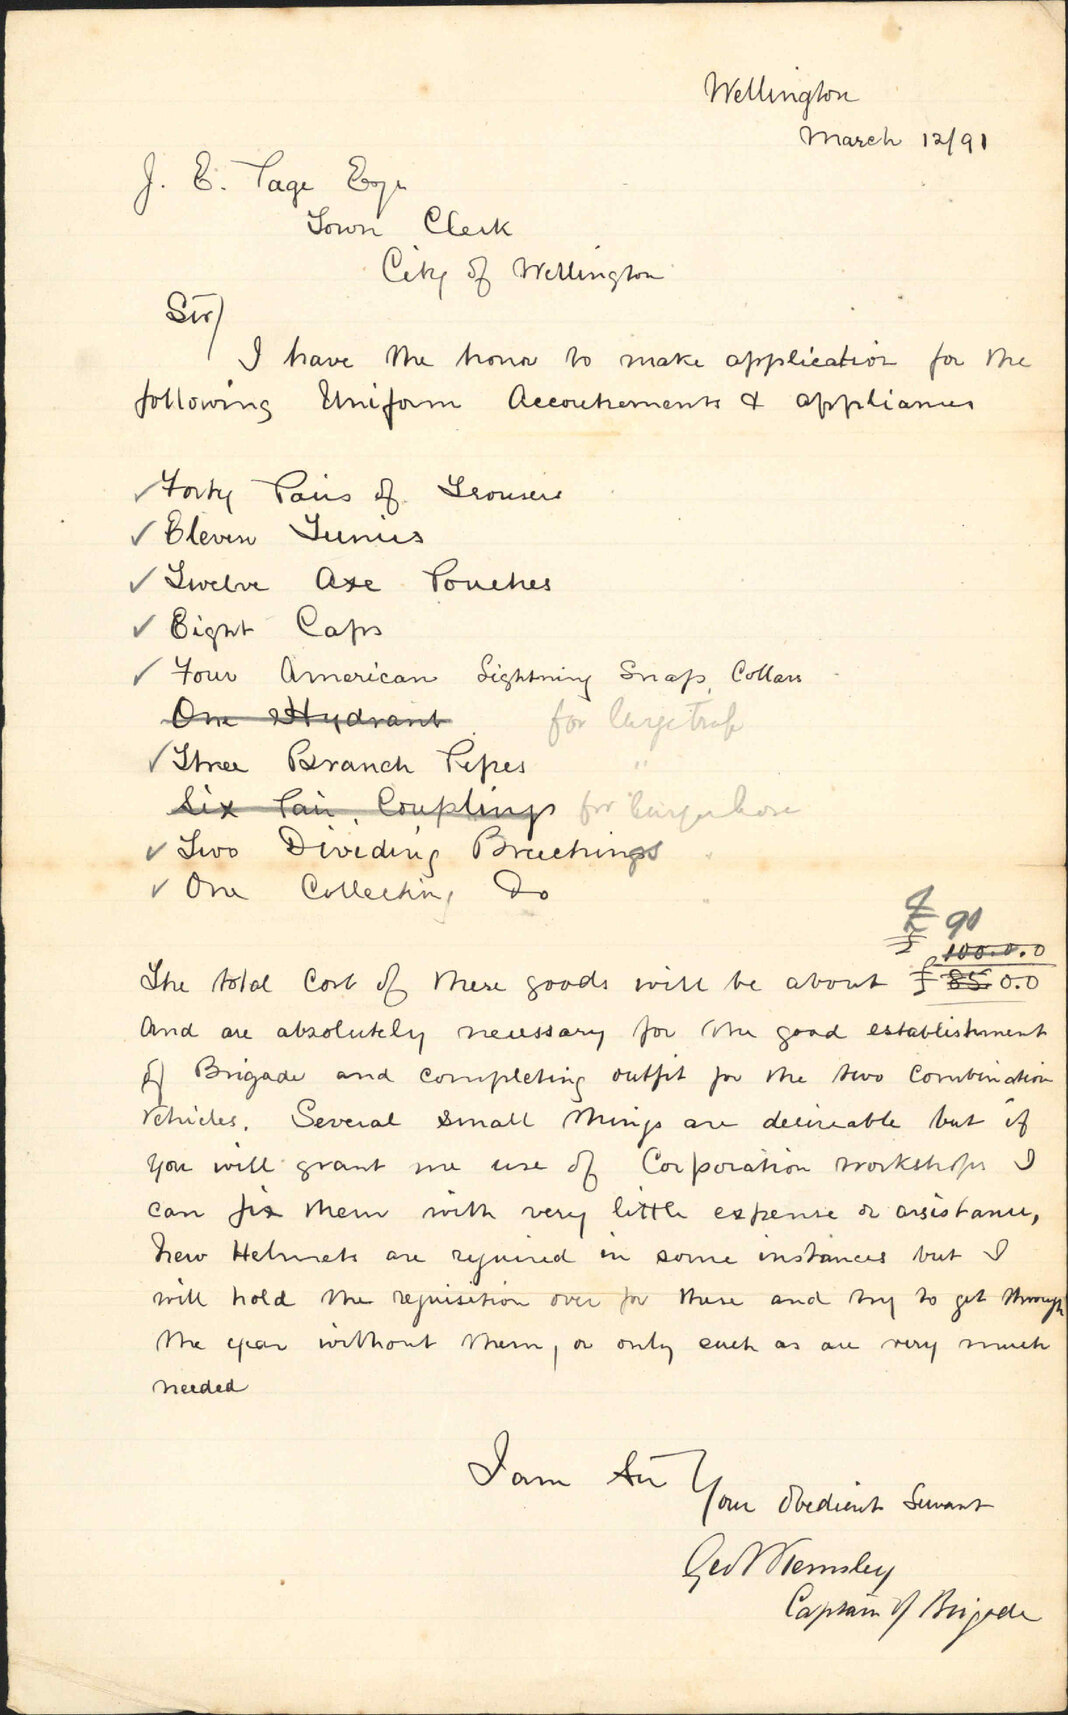 Wellington
March 12/91
J. E. Page Esqr
Town Clerk
City of Wellington
Sir/
I have the honor to make application for the
following Uniform Accoutrements & appliances
✓ Forty Pairs of Trousers
✓ Eleven Tunics
✓ Twelve Axe Pouches
✓ Eight Caps
✓ Four American Lightning Snap Collars
One Hydrant for large
✓ Three Branch Pipes "
Six Pair Couplings for large hose
✓ Two Dividing Breechings
✓ One Collecting Do
£ 90
£ 100.0.0
The total Cost of these goods will be about £ 85.0.0
And are absolutely necessary for the good establishment
of Brigade and completing outfit for the two combination
vehicles. Several small things are desireable but if
you will grant me use of Corporation workshops I
can fix them with very little expense or assistance,
New Helmets are required in some instances but I
will hold the requisition over for these and try to get through
the year without them, or only such as are very much
needed
I am Sir
Your Obedient Servant
Geo
Captain of Brigade